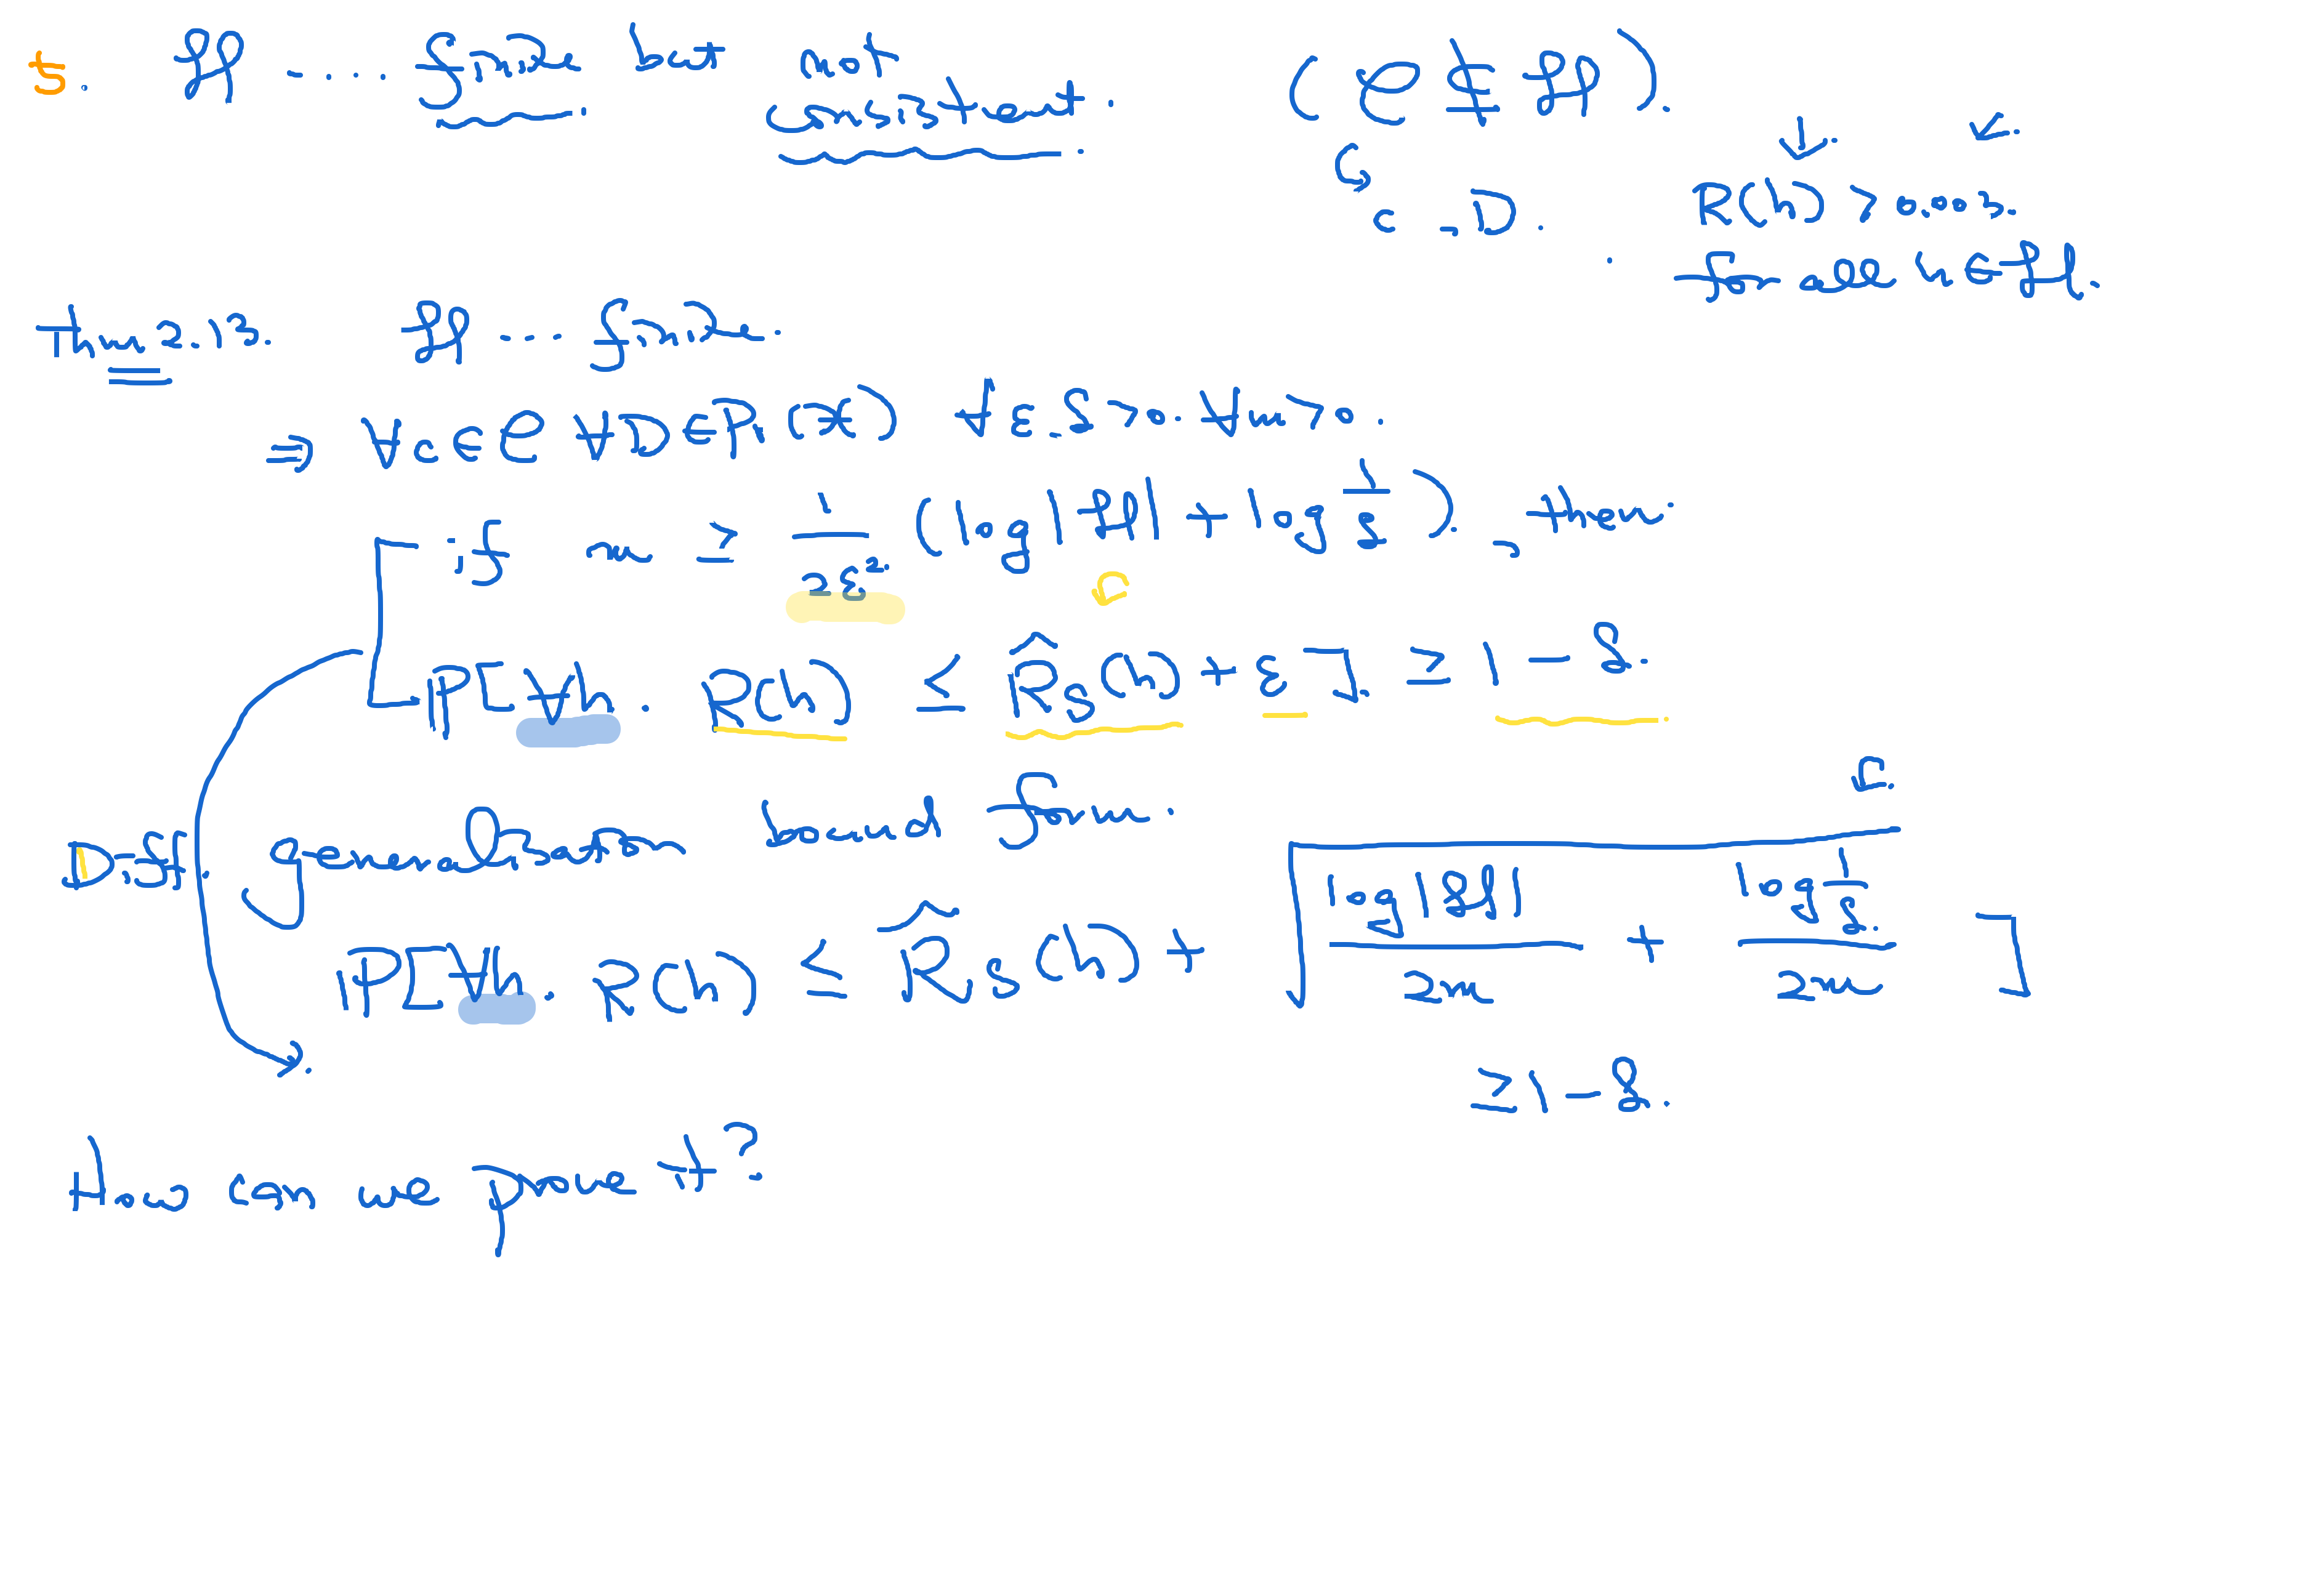 5. H .... finite but not consistent. (C ⊈ H).
c, D. R(h) > 0.002.
for all h ∈ H.
Thm 2.13. H ... finite.
⇒ ∀c∈C ∀D∈Pr(X) ∀ε,δ>0. ∀m>0.
if m ≥ 1/(2ε²) (log|H| + log 1/δ), then.
P[∀h. R(h) ≤ R̂_S(h) + ε] ≥ 1-δ.
Diff. generalisation bound form.
P[∀h. R(h) ≤ R̂_S(h) + √(log|H|/(2m) + log(1/δ)/(2m))]
≥ 1-δ.
How can we prove it?